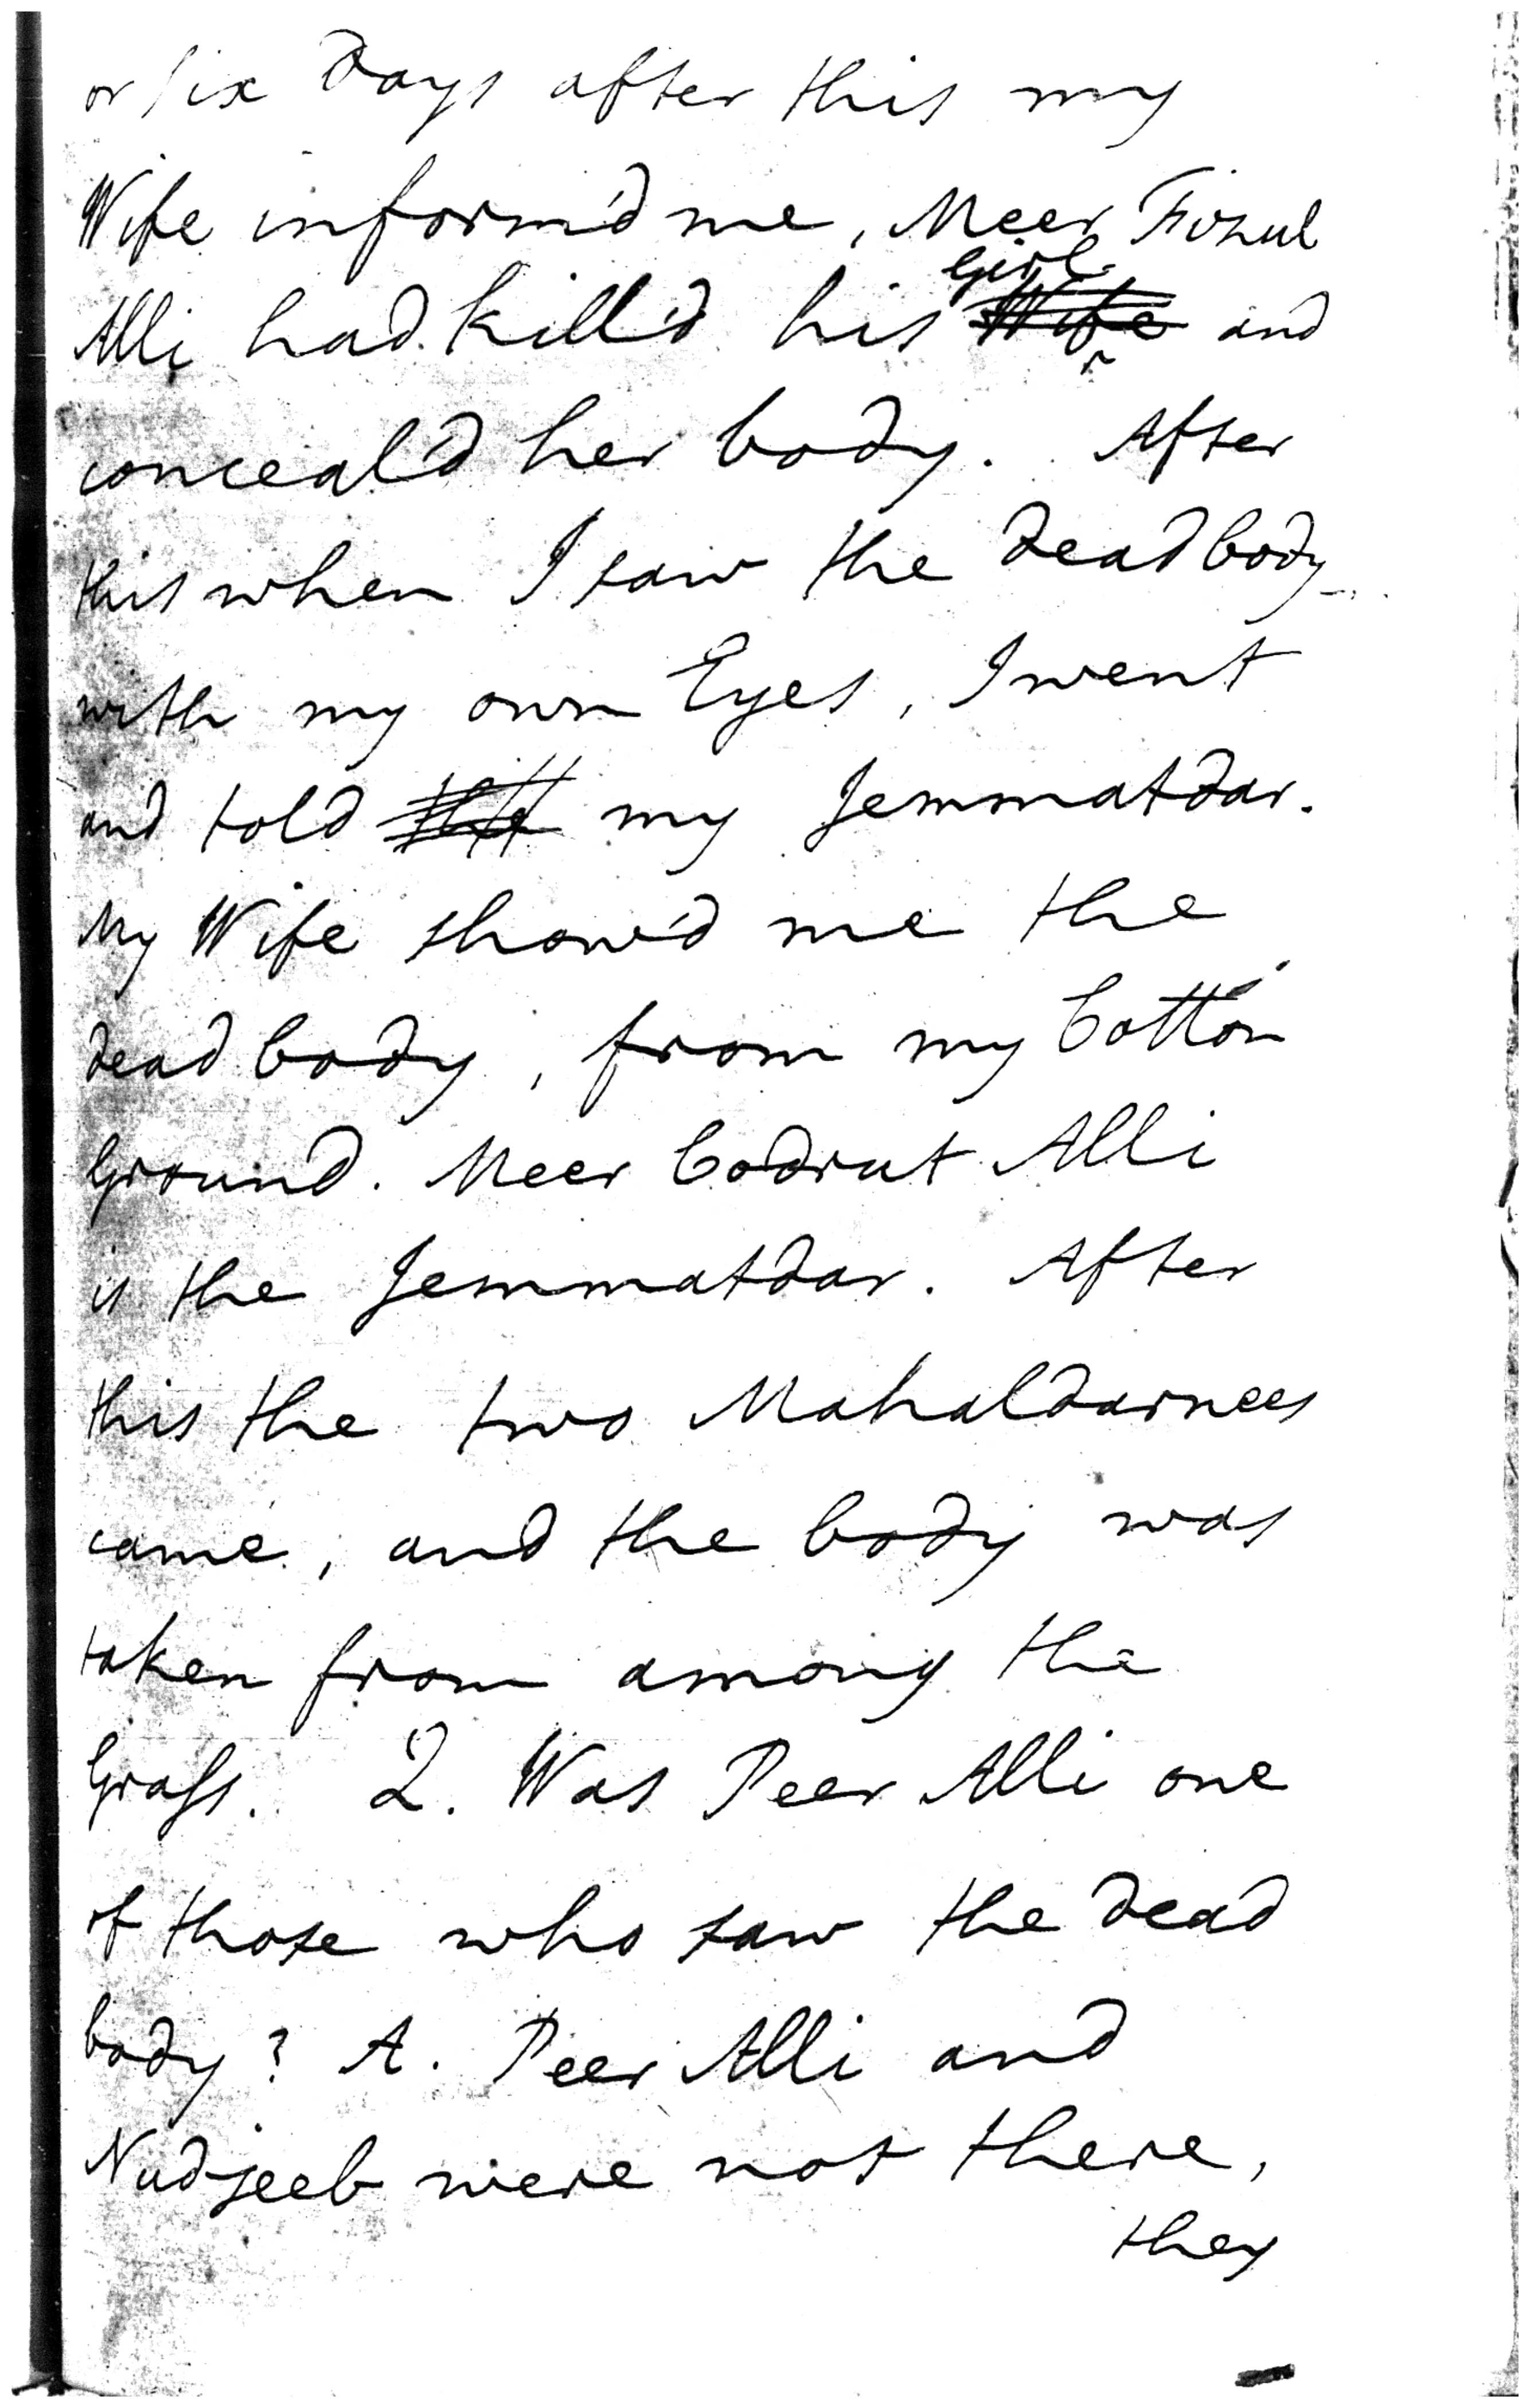 or six Days after this my
Wife inform'd me, Meer Fizul
Girl
Alli had kill'd his Wife and
conceal'd her body. After
this when I saw the dead body
with my own Eyes, I went
and told my Jemmatdar.
My Wife show'd me the
dead body, from my Cotton
Ground. Meer Codrut Alli
is the Jemmatdar. After
this the two Mahaldarnees
came, and the body was
taken from among the
Grass. Q. Was Peer Alli one
of those who saw the dead
body? A. Peer Alli and
Nudjeeb were not there,
they